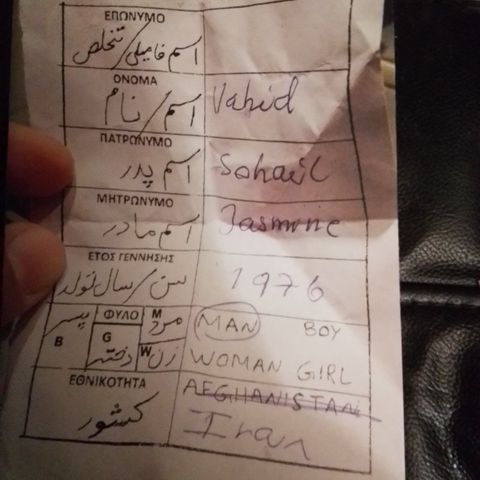 ΕΠΩΝΥΜΟ
اسم فامیلی/تخلص
ΟΝΟΜΑ
اسم/نام
Vahid
ΠΑΤΡΩΝΥΜΟ
اسم پدر
Sohail
ΜΗΤΡΩΝΥΜΟ
اسم مادر
Jasmine
ΕΤΟΣ ΓΕΝΝΗΣΗΣ
سن/سال تولد
1976
پسر B
ΦΥΛΟ
M مرد
MAN BOY
G دختر
W زن
WOMAN GIRL
ΕΘΝΙΚΟΤΗΤΑ
کشور
AFGHANISTAN
Iran